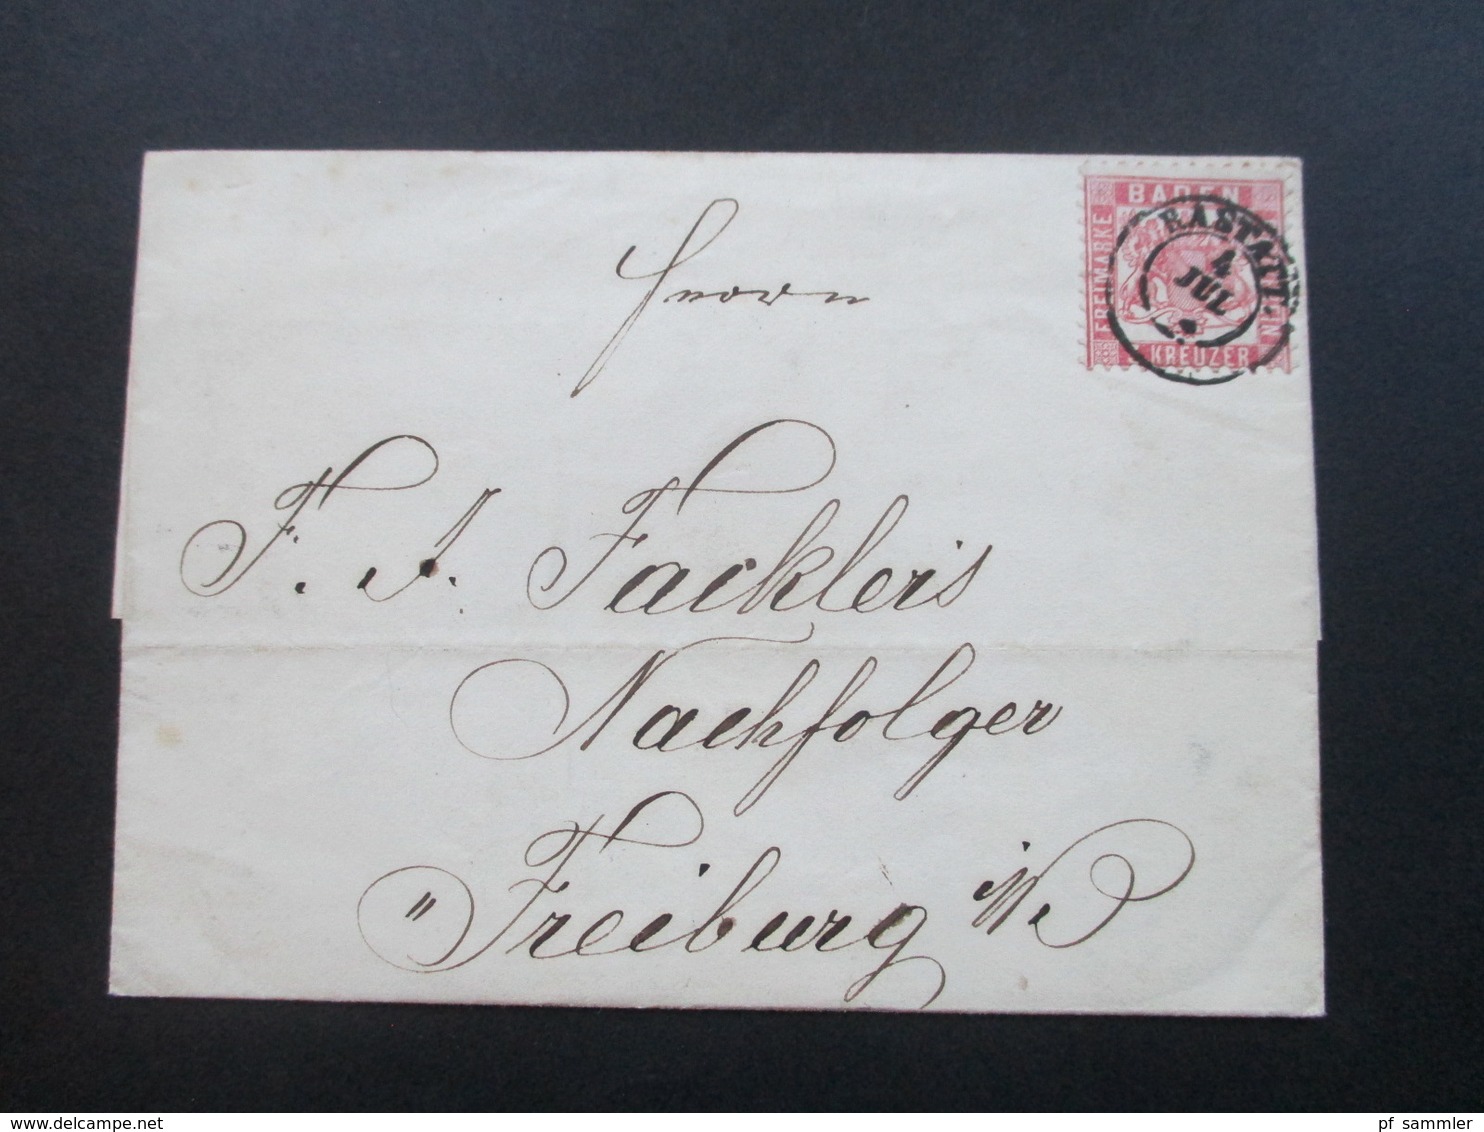 BADEN
FREIMARKE
KREUZER
RASTATT.
4
JUL
Herrn
F. J. Fackleis
Nachfolger
„ Freiburg
pf_sammler